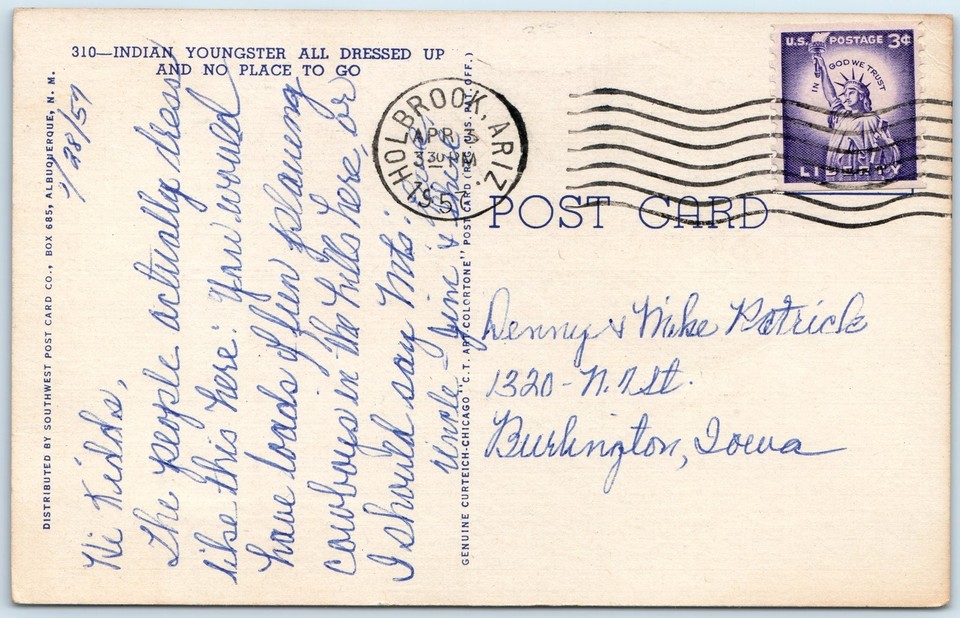 310—INDIAN YOUNGSTER ALL DRESSED UP
AND NO PLACE TO GO
DISTRIBUTED BY SOUTHWEST POST CARD CO., BOX 685, ALBUQUERQUE, N. M.
Hi Kidds,
The people actually dress
like this here. You would
have loads of fun playing
cowboys in the hills here, or
I should say Mts.
Uncle Jim &
GENUINE CURTEICH-CHICAGO "C.T. ART-COLORTONE" POST CARD (REG. U.S. PAT. OFF.)
HOLBROOK, ARIZ.
APR 3
3 30 PM
U.S. POSTAGE 3¢
IN GOD WE TRUST
LIBERTY
POST CARD
Denny & Mike Patrick
1320 - N. 7 St.
Burlington, Iowa